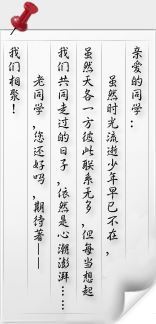 亲爱的同学：
虽然时光流逝少年早已不在，
虽然天各一方彼此联系无多，但每当想起
我们共同走过的日子，依然是心潮澎湃……
老同学，您还好吗，期待著——
我们相聚！